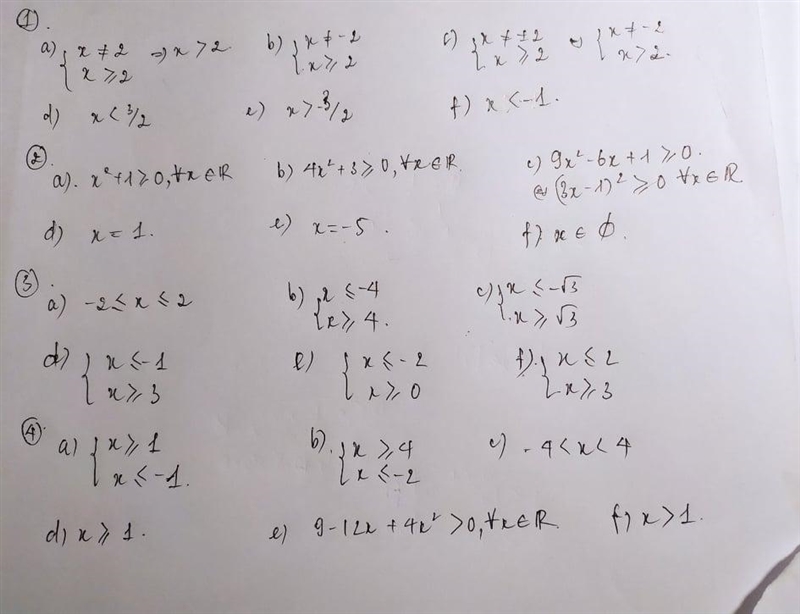 ①.
a) { x ≠ 2 ⇒ x > 2. b) { x ≠ -2 c) { x ≠ ±2 ⇔ { x ≠ -2
x ≥ 2 x ≥ 2 x ≥ 2 x > 2.
d) x < 3/2 e) x > -3/2 f) x < -1.
②.
a). x² + 1 ≥ 0, ∀x ∈ ℝ b) 4x² + 3 ≥ 0, ∀x ∈ ℝ. c) 9x² - 6x + 1 ≥ 0.
⇔ (3x - 1)² ≥ 0 ∀x ∈ ℝ
d) x = 1. e) x = -5. f) x ∈ ∅.
③
a) -2 ≤ x ≤ 2 b) { x ≤ -4 c) { x ≤ -√3
x ≥ 4. x ≥ √3
d) { x ≤ -1 e) { x ≤ -2 f). { x ≤ 2
x ≥ 3 x ≥ 0 x ≥ 3
④.
a) { x ≥ 1 b). { x ≥ 4 c) -4 < x < 4
x ≤ -1. x ≤ -2
d) x ≥ 1. e) 9 - 12x + 4x² > 0, ∀x ∈ ℝ. f) x > 1.